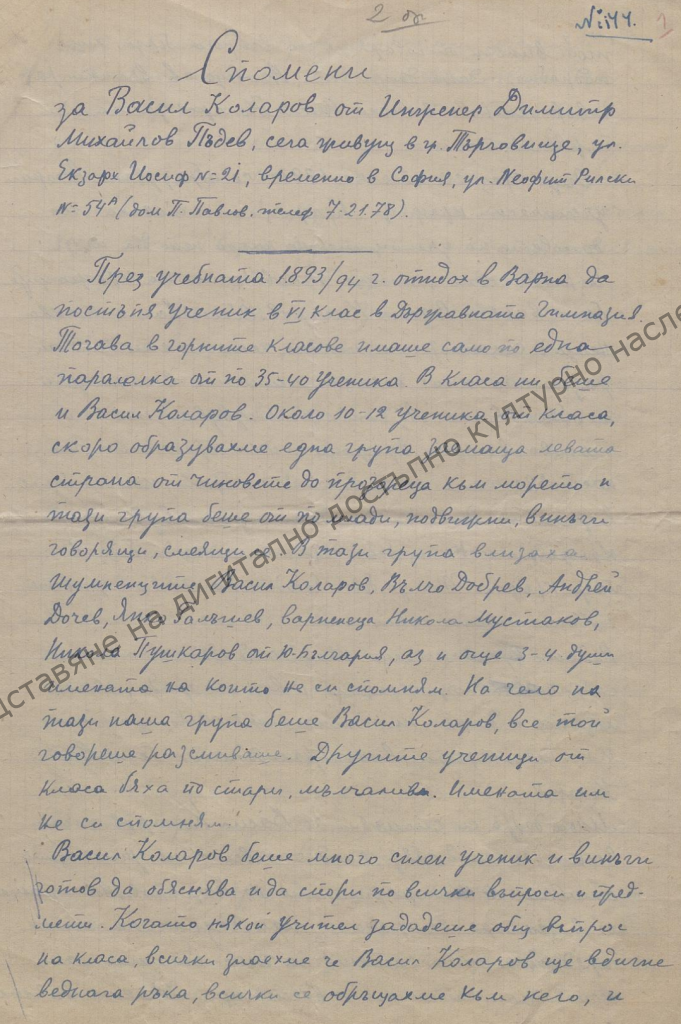 2 бр.
№ 144.
1
Спомени
за Васил Коларов от Инженер Димитър
Михайлов Пъдев, сега живущ в гр. Търговище, ул.
Екзарх Иосиф №=21, временно в София, ул. Неофит Рилски
№=54А (дом П. Павлов. телеф 7.21.78).
През учебната 1893/94 г. отидох в Варна да
постъпя ученик в VI клас в Държавната Гимназия.
Тогава в горните класове имаше само по една
паралелка от по 35-40 ученика. В класа ни беше
и Васил Коларов. Около 10-12 ученика от класа,
скоро образувахме една група заемаща левата
страна от чиновете до прозореца към морето и
тази група беше от по млади, подвижни, винъги
говорящи, смеящи се. В тази група влизаха
Шуменците Васил Коларов, Вълчо Добрев, Андрей
Дочев, Янко варненеца Никола Мустаков,
Никола Пушкаров от Ю-България, аз и още 3-4 души
имената на които не си спомням. На чело на
тази наша група беше Васил Коларов, все той
говореше разсмиваше. Другите ученици от
класа бяха по стари, мълчаливи. Имената им
не си спомням.
Васил Коларов беше много силен ученик и винъги
готов да обяснява и да спори по всички въпроси и пред-
мети. Когато някой учител зададеше общ въпрос
на класа, всички знаехме че Васил Коларов ще вдигне
веднага ръка, всички се обръщахме към него, и
дставяне на дигитално достъпно културно насле